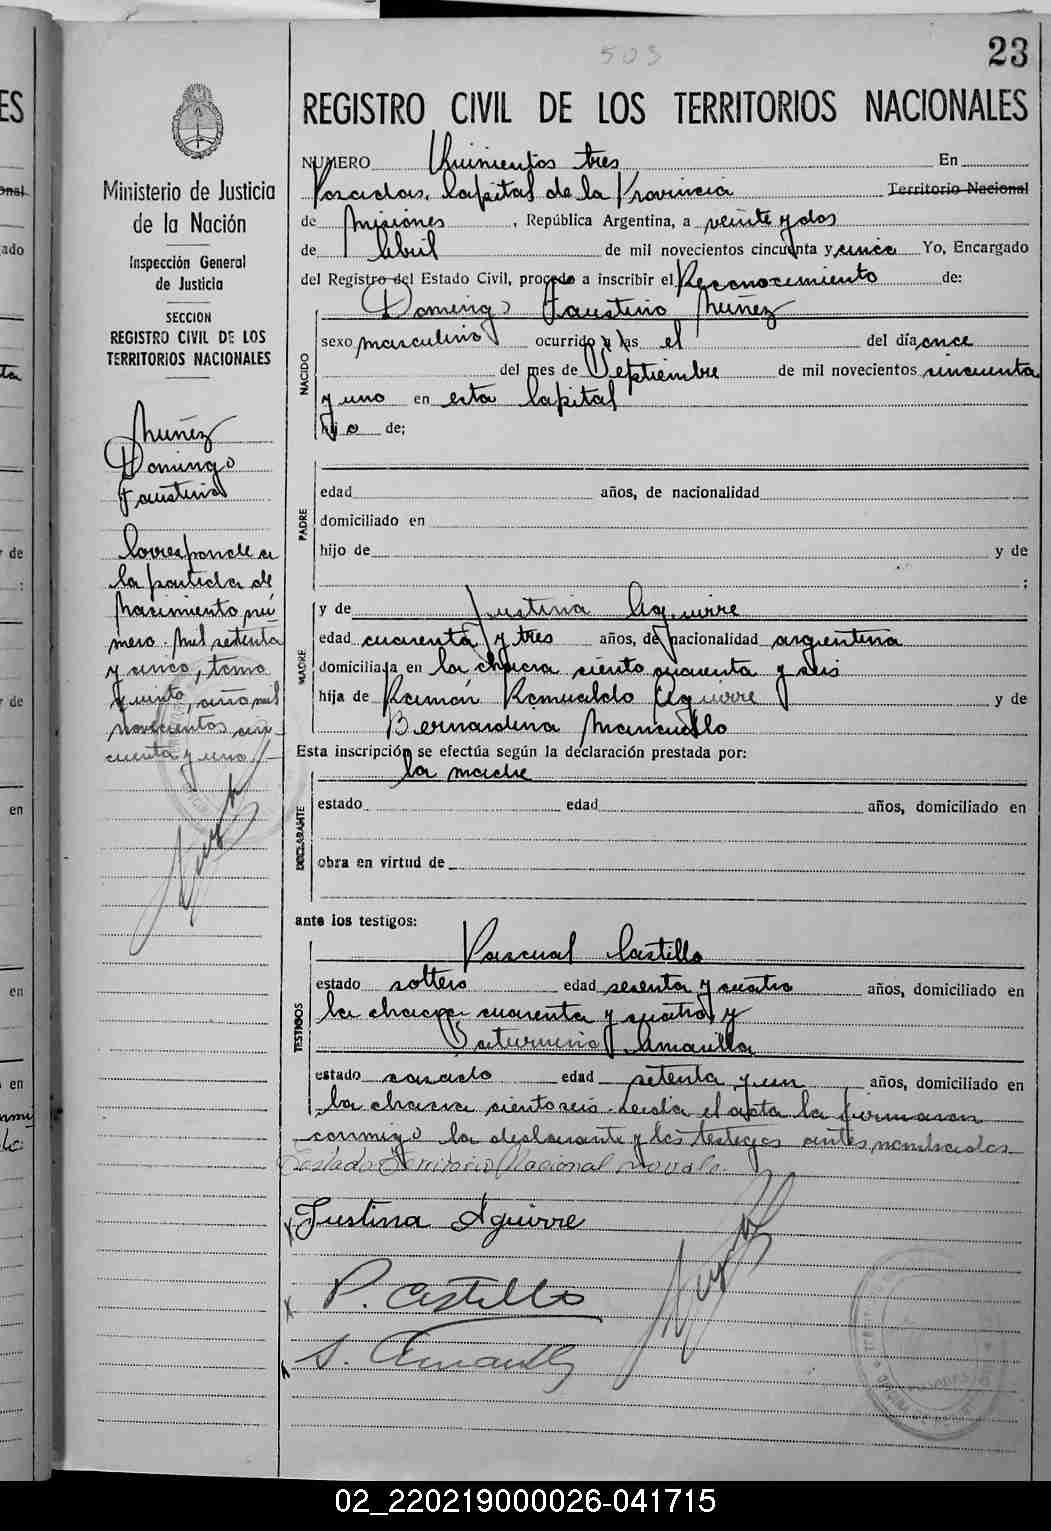 503
23
REGISTRO CIVIL DE LOS TERRITORIOS NACIONALES
NUMERO Quinientos tres En
Posadas, Capital de la Provincia Territorio Nacional
de Misiones, República Argentina, a veinte y dos
de Abril de mil novecientos cincuenta y cinco Yo, Encargado
del Registro del Estado Civil, procedo a inscribir el Reconocimiento de:
Domingo Faustino Nuñez
NACIDO
sexo masculino ocurrido a las el del día once
del mes de Septiembre de mil novecientos cincuenta
y uno en esta Capital
hijo de;
PADRE
edad años, de nacionalidad
domiciliado en
hijo de y de
;
MADRE
y de Justina Aguirre
edad cuarenta y tres años, de nacionalidad argentina
domiciliada en la chacra ciento cuarenta y seis
hija de Ramón Romualdo Aguirre y de
Bernardina Mancuello
Esta inscripción se efectúa según la declaración prestada por:
la madre
DECLARANTE
estado edad años, domiciliado en
obra en virtud de
ante los testigos:
TESTIGOS
Pascual Castillo
estado soltero edad sesenta y cuatro años, domiciliado en
la chacra cuarenta y cuatro y
Saturnino Amarilla
estado casado edad setenta y un años, domiciliado en
la chacra ciento seis. Leida el acta la firmaron
conmigo la declarante y los testigos antes nombrados.
Testado Territorio Nacional no vale.
Justina Aguirre
P. Castillo
S. Amarilla
Ministerio de Justicia
de la Nación
Inspección General
de Justicia
SECCION
REGISTRO CIVIL DE LOS
TERRITORIOS NACIONALES
Nuñez
Domingo
Faustino
Corresponde a
la partida de
Nacimiento nú
mero mil setenta
y cinco, tomo
quinto, año mil
novecientos cin-
cuenta y uno.
02_220219000026-041715